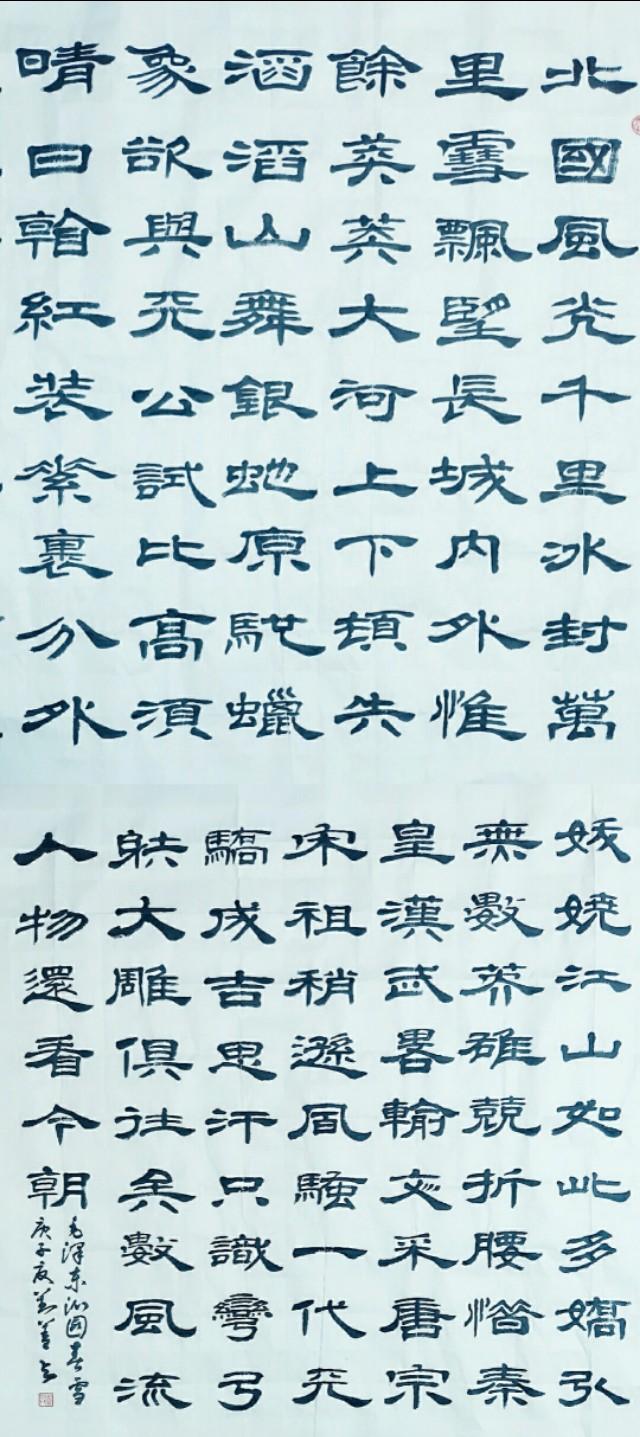 北國風光千里冰封萬
里雪飄望長城內外惟
餘莽莽大河上下頓失
滔滔山舞銀蛇原馳蠟
象欲與天公試比高須
晴日看紅裝素裹分外
妖嬈江山如此多嬌引
無數英雄競折腰惜秦
皇漢武畧輸文采唐宗
宋祖稍遜風騷一代天
驕成吉思汗只識彎弓
射大雕俱往矣數風流
人物還看今朝
毛澤東沁園春雪
庚子夏